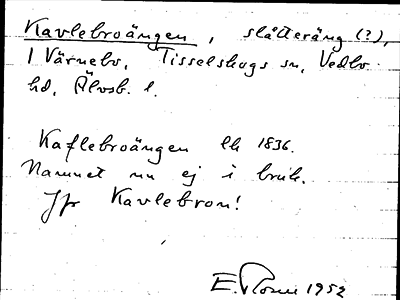 Kavlebroängen, slåtteräng (?),
I Värnebo, Tisselskogs sn, Vedbo
hd, Älvsb. l.
Kaflebroängen lh 1836.
Namnet nu ej i bruk.
Jfr Kavlebron!
E. 1952